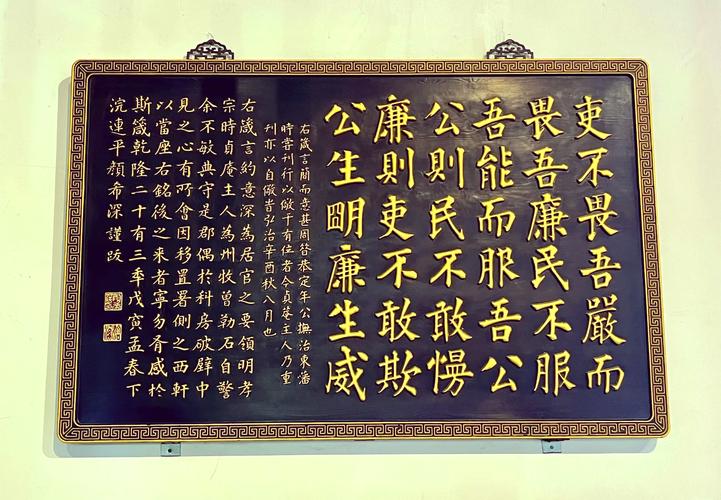 吏不畏吾嚴而
畏吾廉民不服
吾能而服吾公
公則民不敢慢
廉則吏不敢欺
公生眀廉生威
右箴言簡而意甚周昔恭定年公撫治東藩
時嘗刊行以儆于有位者今貞菴主人乃重
刊亦以自儆旹弘治辛酉秋八月也
右箴言約意深為居官之要領明孝
宗時貞庵主人為州牧曾勒石自警
余不敏典守是郡偶於科房破壁中
見之心有所會因移置署側之西軒
以當座右銘後之來者寧勿胥感於
斯箴乾隆二十有三年戊寅孟春下
浣連平顏希深謹跋